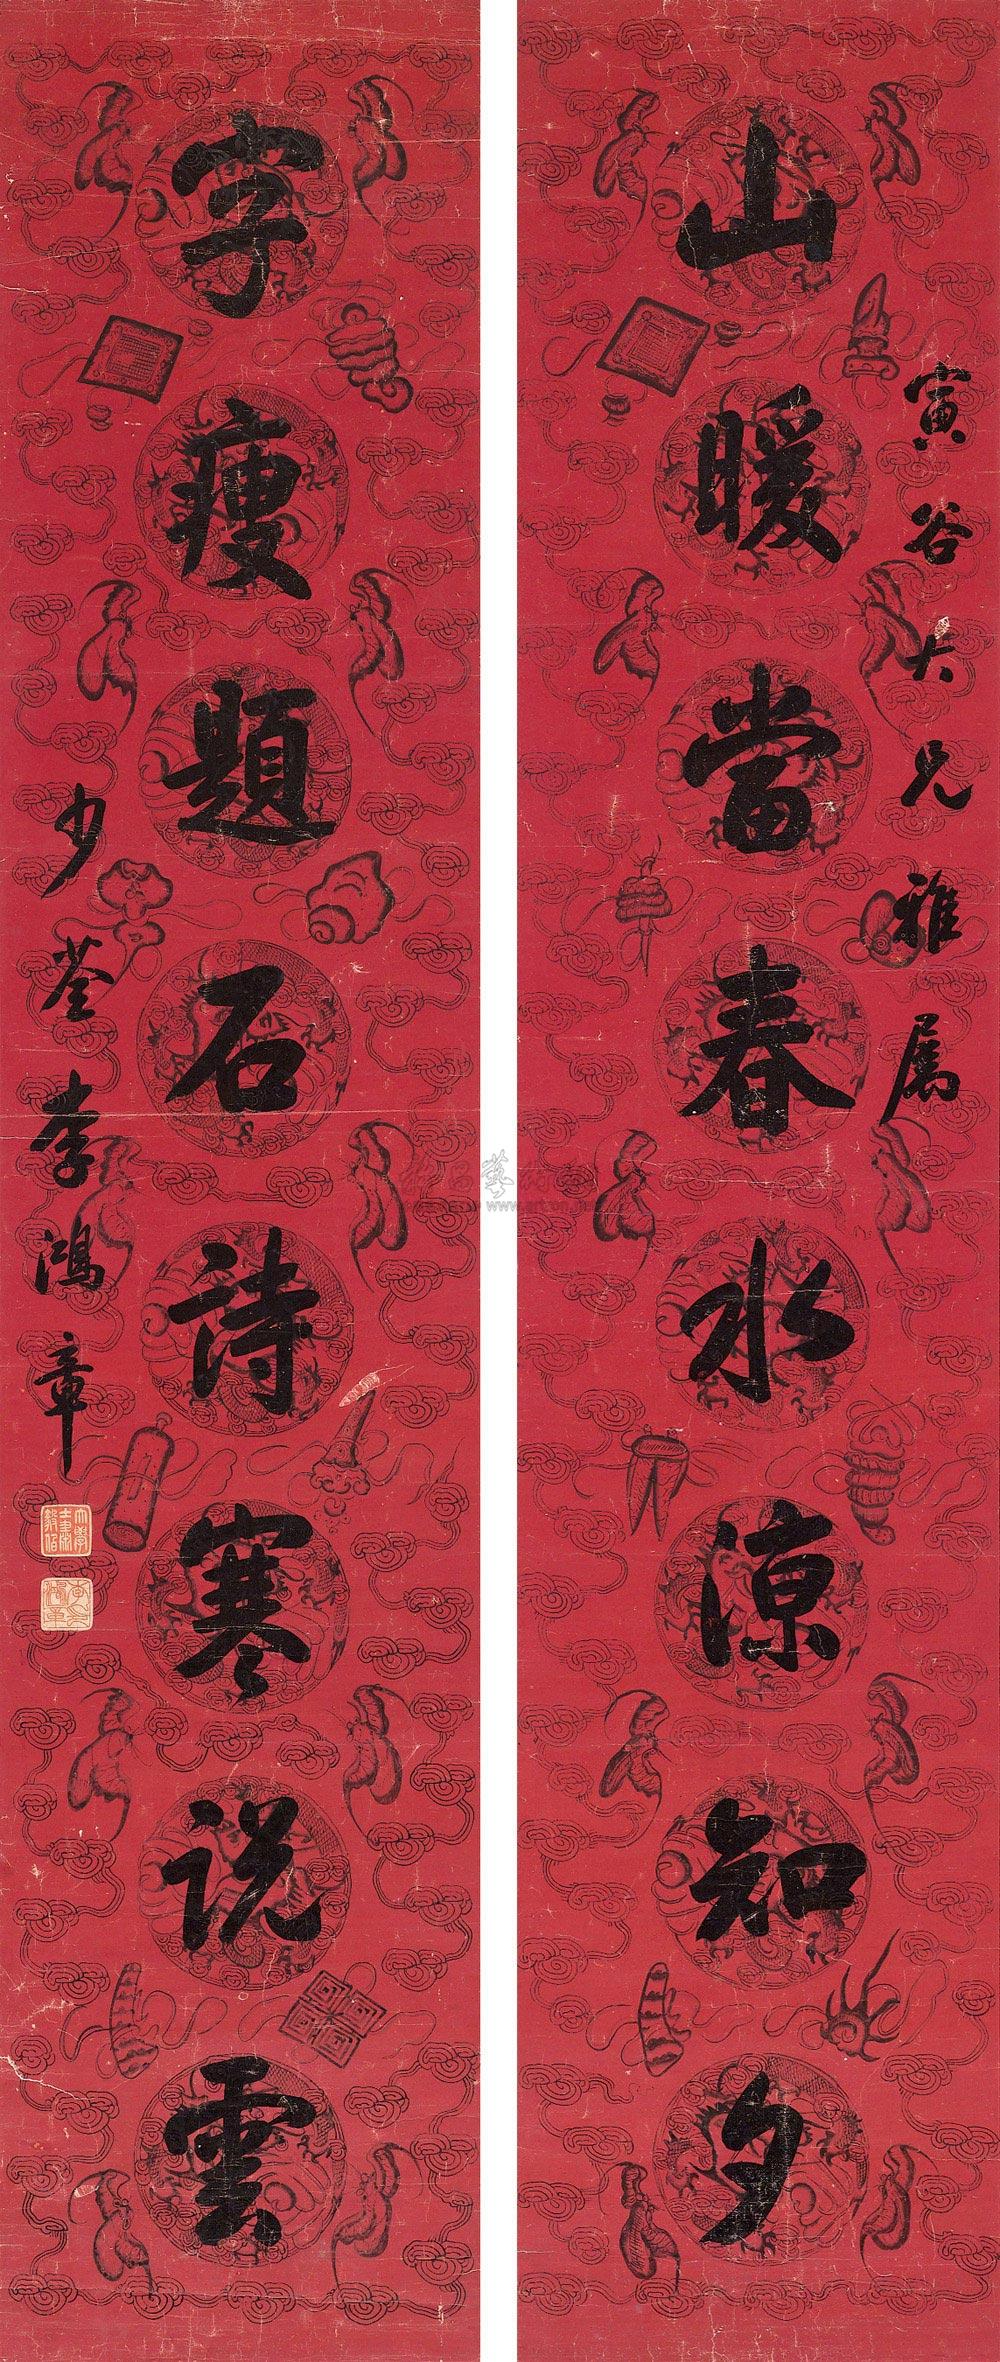 寅谷大兄雅属
山暖當春水涼知夕
字瘦題石詩寒說雲
少荃李鴻章
大學士肅毅伯
李鴻章